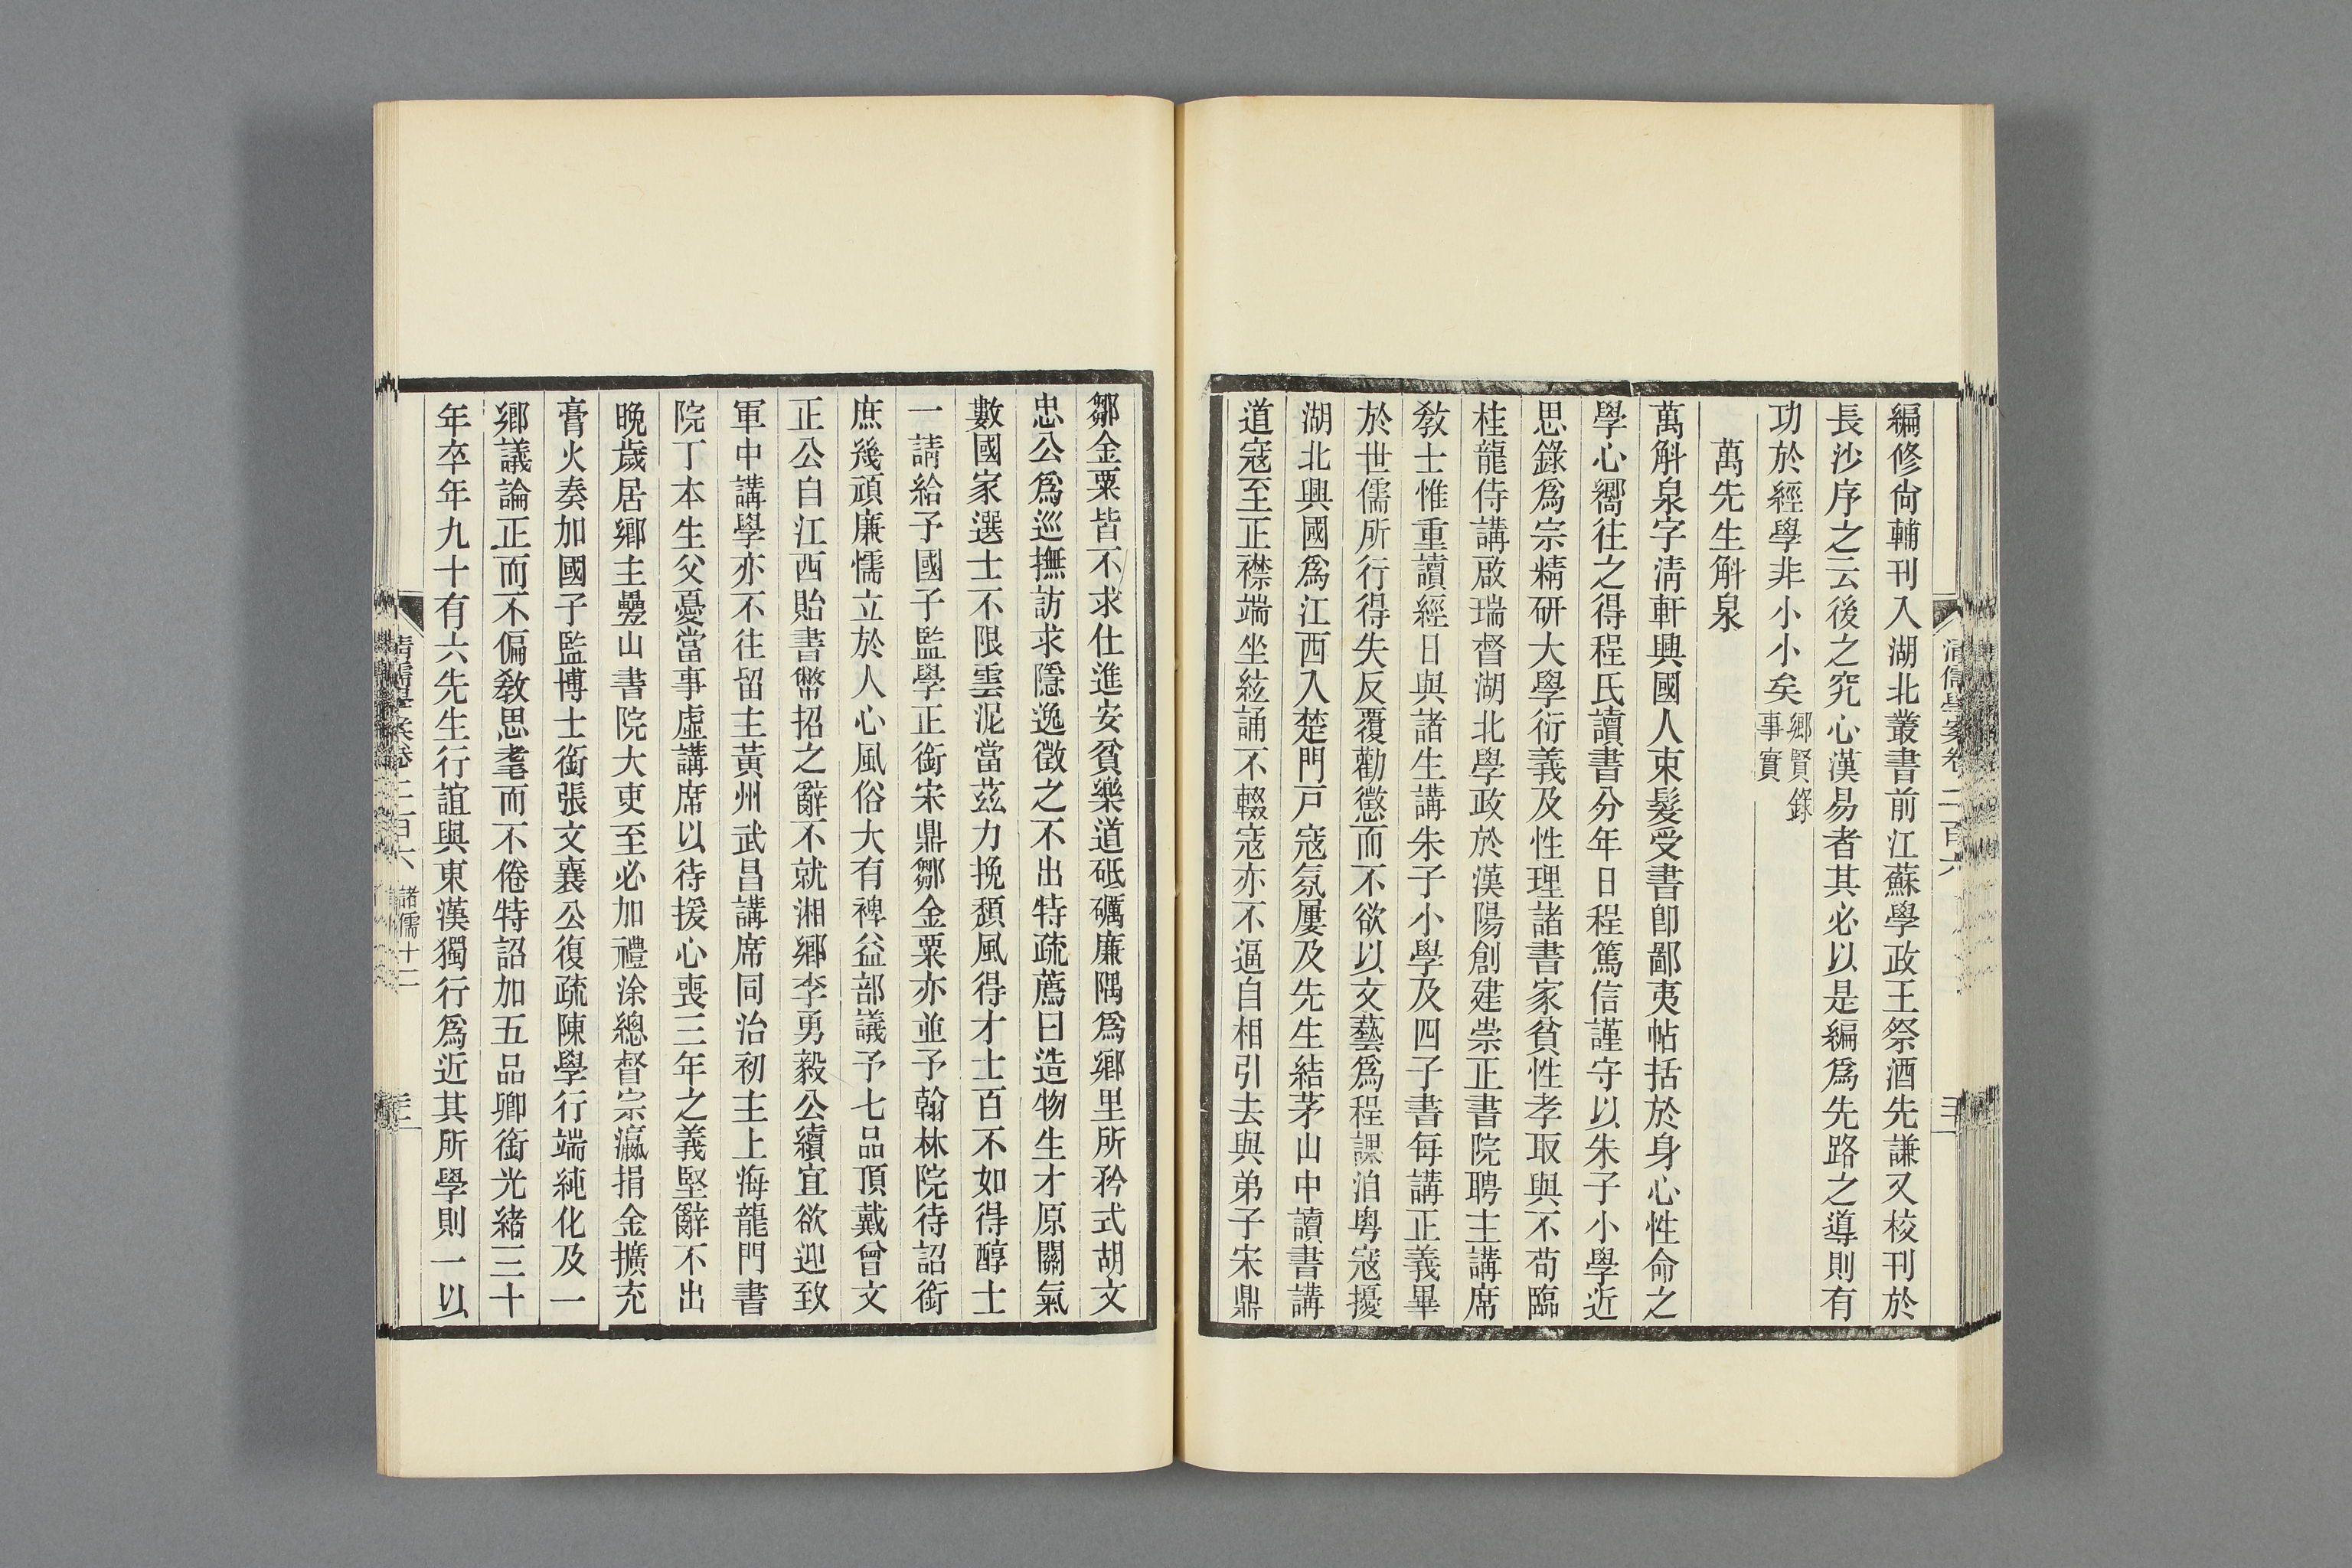 編修尙輔刊入湖北叢書前江蘇學政王祭酒先謙又校刊於
長沙序之云後之究心漢易者其必以是編爲先路之導則有
功於經學非小小矣鄉賢錄
事實
萬先生斛泉
萬斛泉字淸軒興國人束髮受書卽鄙夷帖括於身心性命之
學心嚮往之得程氏讀書分年日程篤信謹守以朱子小學近
思錄爲宗精研大學衍義及性理諸書家貧性孝取與不苟臨
桂龍侍講啟瑞督湖北學政於漢陽創建崇正書院聘主講席
敎士惟重讀經日與諸生講朱子小學及四子書每講正義畢
於世儒所行得失反覆勸懲而不欲以文藝爲程課洎粵寇擾
湖北興國爲江西入楚門戶寇氛屢及先生結茅山中讀書講
道寇至正襟端坐絃誦不輟寇亦不逼自相引去與弟子宋鼎
鄒金粟皆不求仕進安貧樂道砥礪廉隅爲鄉里所矜式胡文
忠公爲巡撫訪求隱逸徵之不出特疏薦曰造物生才原關氣
數國家選士不限雲泥當茲力挽頹風得才士百不如得醇士
一請給予國子監學正銜宋鼎鄒金粟亦並予翰林院待詔銜
庶幾頑廉懦立於人心風俗大有裨益部議予七品頂戴曾文
正公自江西貽書幣招之辭不就湘鄉李勇毅公續宜欲迎致
軍中講學亦不往留主黃州武昌講席同治初主上海龍門書
院丁本生父憂當事虛講席以待援心喪三年之義堅辭不出
晩歲居鄉主疊山書院大吏至必加禮涂總督宗瀛捐金擴充
膏火奏加國子監博士銜張文襄公復疏陳學行端純化及一
鄉議論正而不偏敎思耄而不倦特詔加五品卿銜光緖三十
年卒年九十有六先生行誼與東漢獨行爲近其所學則一以
清儒學案卷二百六 諸儒十二